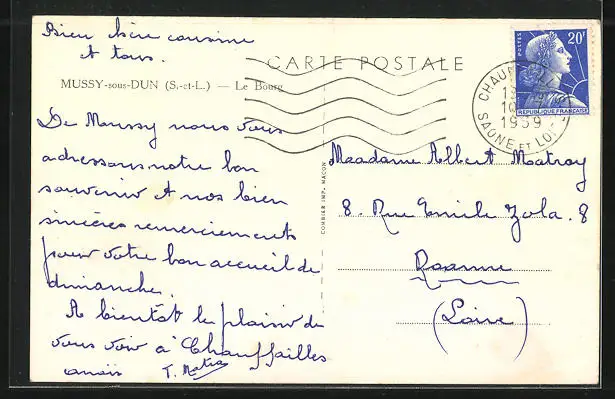 Bien chère cousine
et tous.
CARTE POSTALE
MUSSY-sous-DUN (S.-et-L.) — Le Bourg
De Mussy nous vous
adressons notre bon
souvenir et nos bien
sincères remerciements
pour votre bon accueil de
dimanche.
A bientôt le plaisir de
vous voir à Chauffailles
COMBIER IMP. MACON
POSTES 20F
REPUBLIQUE FRANÇAISE
CHAUF
1959
SAONE ET LOIRE
Madame Albert Matray
8. Rue Emile Zola. 8
Roanne
(Loire)